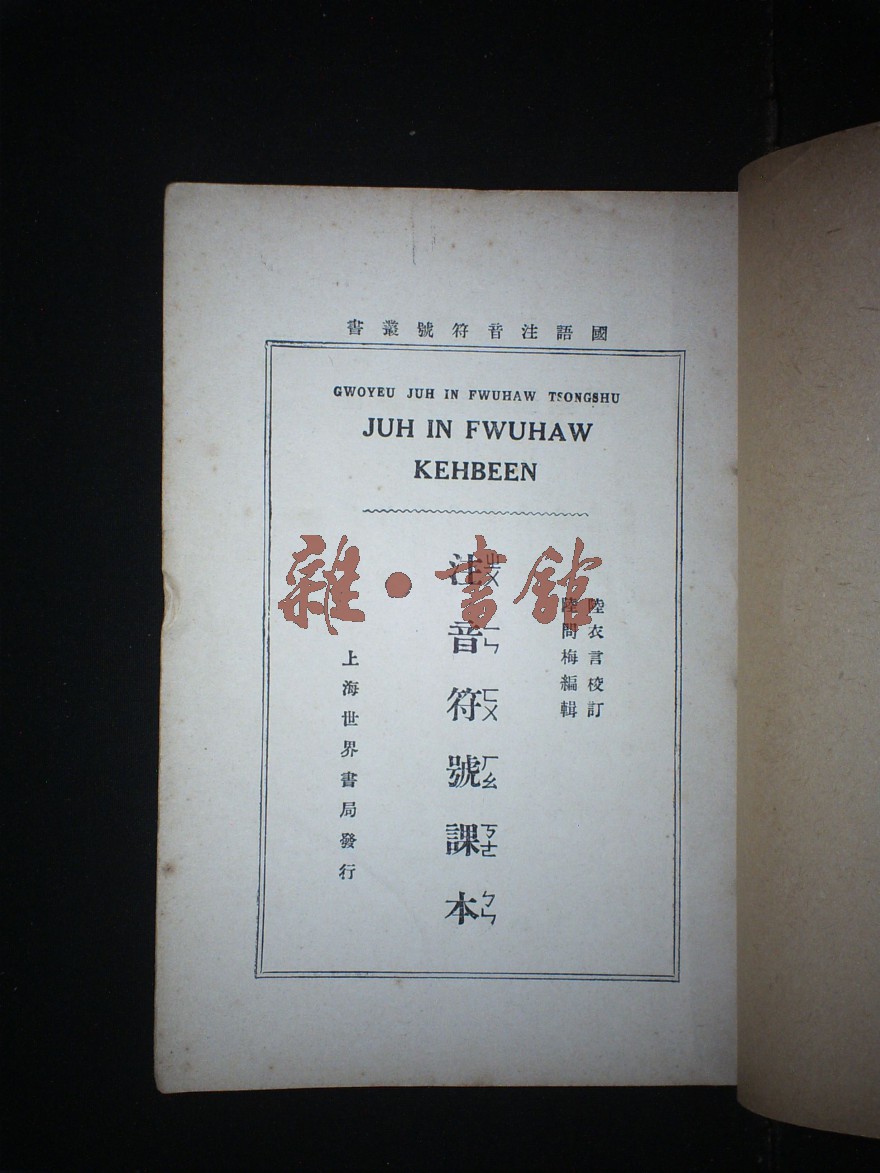 國語注音符號叢書
GWOYEU JUH IN FWUHAW TSONGSHU
JUH IN FWUHAW
KEHBEEN
陸衣言校訂
陸問梅編輯
注音符號課本
ㄓㄨ ㄧㄣ ㄈㄨ ㄏㄠ ㄎㄜ ㄅㄣ
上海世界書局發行
雜·書館